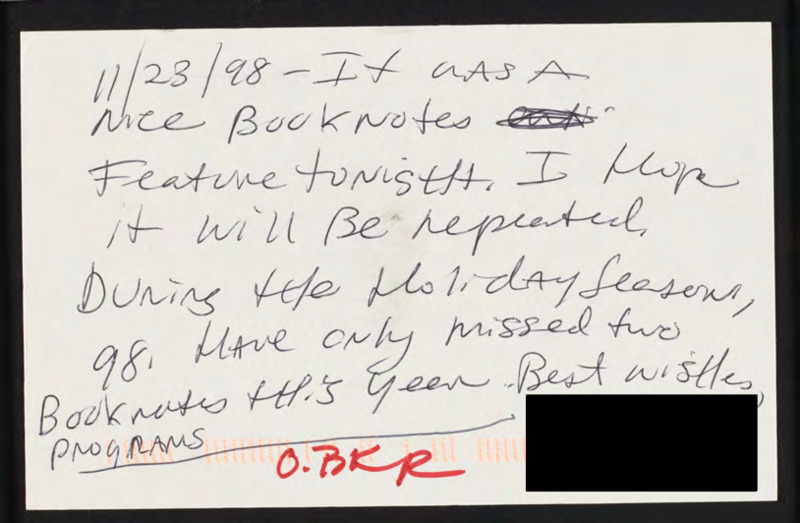 11/23/98 - It was A
Nice Booknotes
Feature tonight. I Hope
it will Be repeated,
During the Holiday Season,
98. Have only missed two
Booknotes this year. Best wishes,
PROGRAMS
O.BKR